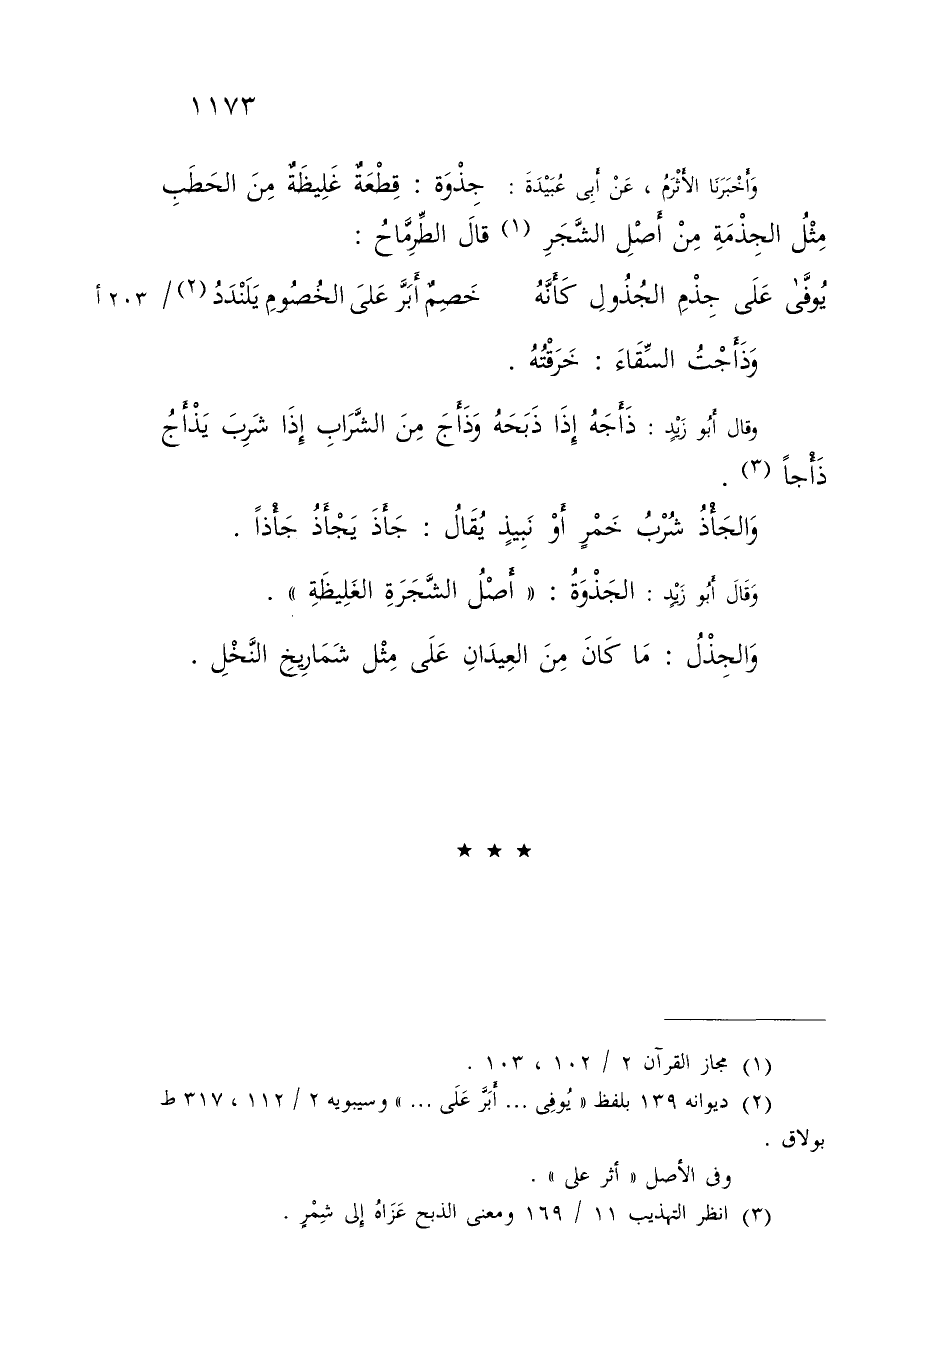 ١١٧٣
وَأَخْبَرَنَا الأَثْرَمُ ، عَنْ أَبِى عُبَيْدَةَ : جِذْوَة : قِطْعَةٌ غَلِيظَةٌ مِنَ الحَطَبِ
مِثْلُ الجِذْمَةِ مِنْ أَصْلِ الشَّجَرِ (١) قالَ الطِّرِمَّاحُ :
يُوفَّىٰ عَلَى جِذْمِ الجُذُولِ كَأَنَّهُ خَصِمٌ أَبَرَّ عَلىَ الخُصُومِ يَلَنْدَدُ (٢) / ٢٠٣ أ
وَذَأَجْتُ السِّقَاءَ : خَرَقْتُهُ .
وقال أَبُو زَيْدٍ : ذَأَجَهُ إِذَا ذَبَحَهُ وَذَأَجَ مِنَ الشَّرَابِ إِذَا شَرِبَ يَذْأَجُ
ذَأْجاً (٣) .
وَالجَأْذُ شُرْبُ خَمْرٍ أَوْ نَبِيذٍ يُقَالُ : جَأَذَ يَجْأَذُ جَأْذاً .
وَقَالَ أَبُو زَيْدٍ : الجَذْوَةُ : « أَصْلُ الشَّجَرَةِ الغَلِيظَةِ » .
وَالجِذْلُ : مَا كَانَ مِنَ العِيدَانِ عَلَى مِثْل شَمَارِيخِ النَّخْلِ .
★ ★ ★
(١) مجاز القرآن ٢ / ١٠٢ ، ١٠٣ .
(٢) ديوانه ١٣٩ بلفظ « يُوفِى ... أَبَرَّ عَلَى ... » وسيبويه ٢ / ١١٢ ، ٣١٧ ط
بولاق .
وفى الأصل « أثر على » .
(٣) انظر التهذيب ١١ / ١٦٩ ومعنى الذبح عَزَاهُ إِلى شِمْرٍ .